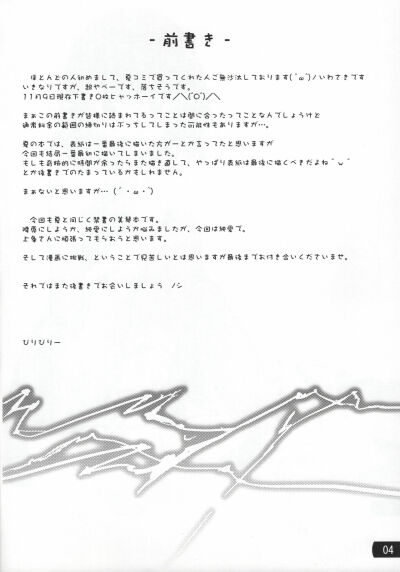 - 前書き -
ほとんどの人初めまして、夏コミで買ってくれた人ご無沙汰しております(´ω`)ノいわさきです
いきなりですが、超やべーです、落ちそうです。
11月9日現在下書き0枚ヒャッホーイです／＼(^O^)／＼
まぁこの前書きが皆様に読まれてるってことは間に合ったってことなんでしょうけど
通常料金の範囲の締切りはぶっちしてしまった可能性もありますが…。
夏の本では、表紙は一番最後に描いた方がーとか言ってたと思いますが
今回も結局一番最初に描いてしまいました。
もしも奇跡的に時間が余ったらまた描き直して、やっぱり表紙は最後に描くべきだよね｀ω´
とか後書きでのたまっているかもしれません。
まぁないと思いますが…（´・ω・`）
今回も夏と同じく禁書の美琴本です。
陵辱にしようか、純愛にしようか悩みましたが、今回は純愛で。
上条さんに頑張ってもらおうと思います。
そして漫画に挑戦、ということで見苦しいとは思いますが最後までお付き合いくださいませ。
それではまた後書きでお会いしましょう　ノシ
びりびりー
04